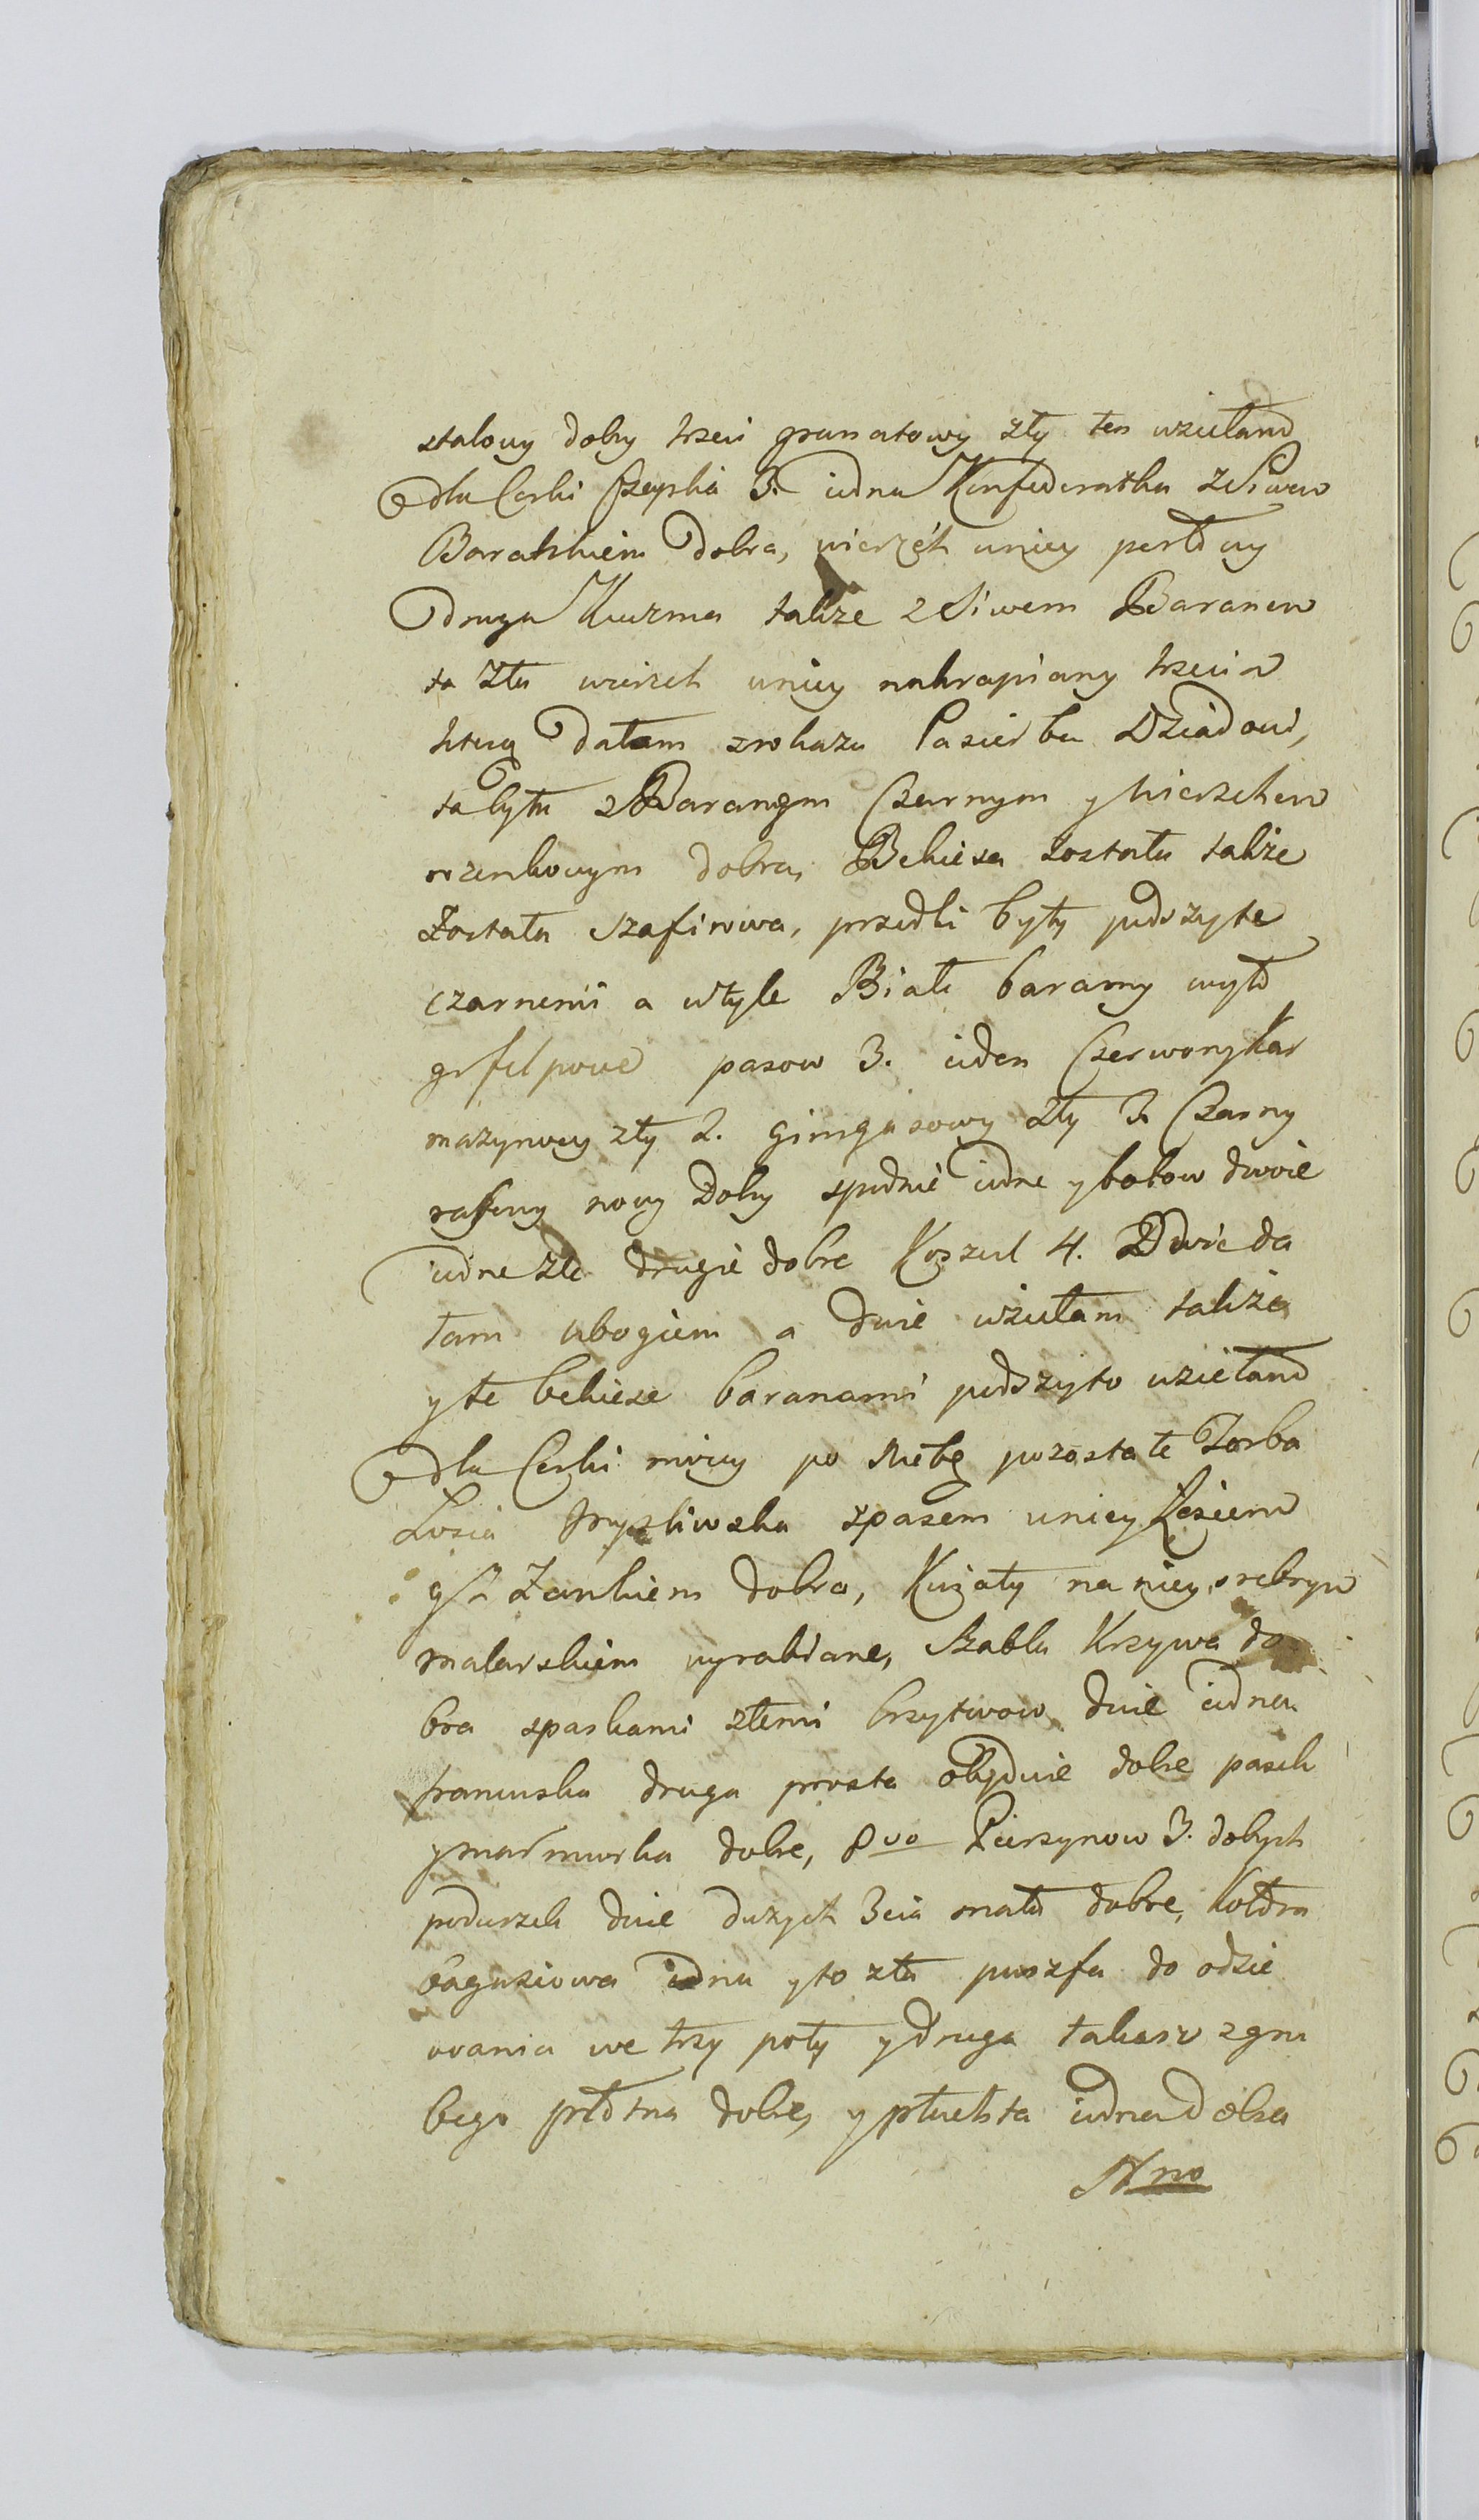 stalowy dobry trzeci granatowy zły ten wziełam
dla Corki Czapka 3. iedna Konfederatka z Siwem
Barankiem dobra, wierzch u niey perłowy
druga Kuczma także z Siwem Baranem
ta zła wierzch u niey nakrapiany trzecia
kturą dałam z rokazu Pasierba Dziadowi,
ta była z Baranem Czarnym y wierzchem
dobra, Bekiesa została także
Została Szafirowa, przodki były podszyte
czarnemi a w tyle Białe barany wyło
pasow 3. ieden Czerwony Kar
mazynowy zły 2. gingasowy zły 3. Czarny
nowy Dobry spodnie iedne y botow dwoie
iedne złe drugie dobre Koszul 4. Dwie da
łam ubogiem a dwie wziełam także
y te bekiese baranami podszyto wziełam
dla Corki moiey po Mężu pozostałe Torba
Łosia Mysliwska z pasem u niey Łosiem
y z Zamkiem dobra, Kwiaty na niey srebrym
malarskiem wyrabiane, Szabla Krzywa do
bra z paskami złemi brzytwow dwie iedna
francuska druga prosta obydwie dobre pasek
y marmurka dobre, 8vo Pierzynow 3. dobrych
poduszek dwie dużych 3cia mała dobre, Kołdra
bagaziowa iedna y to zła poszfa do odzie
wania we trzy poły y druga takasz z gru
bego płotna dobre, y płachta iedna dobra
Nno